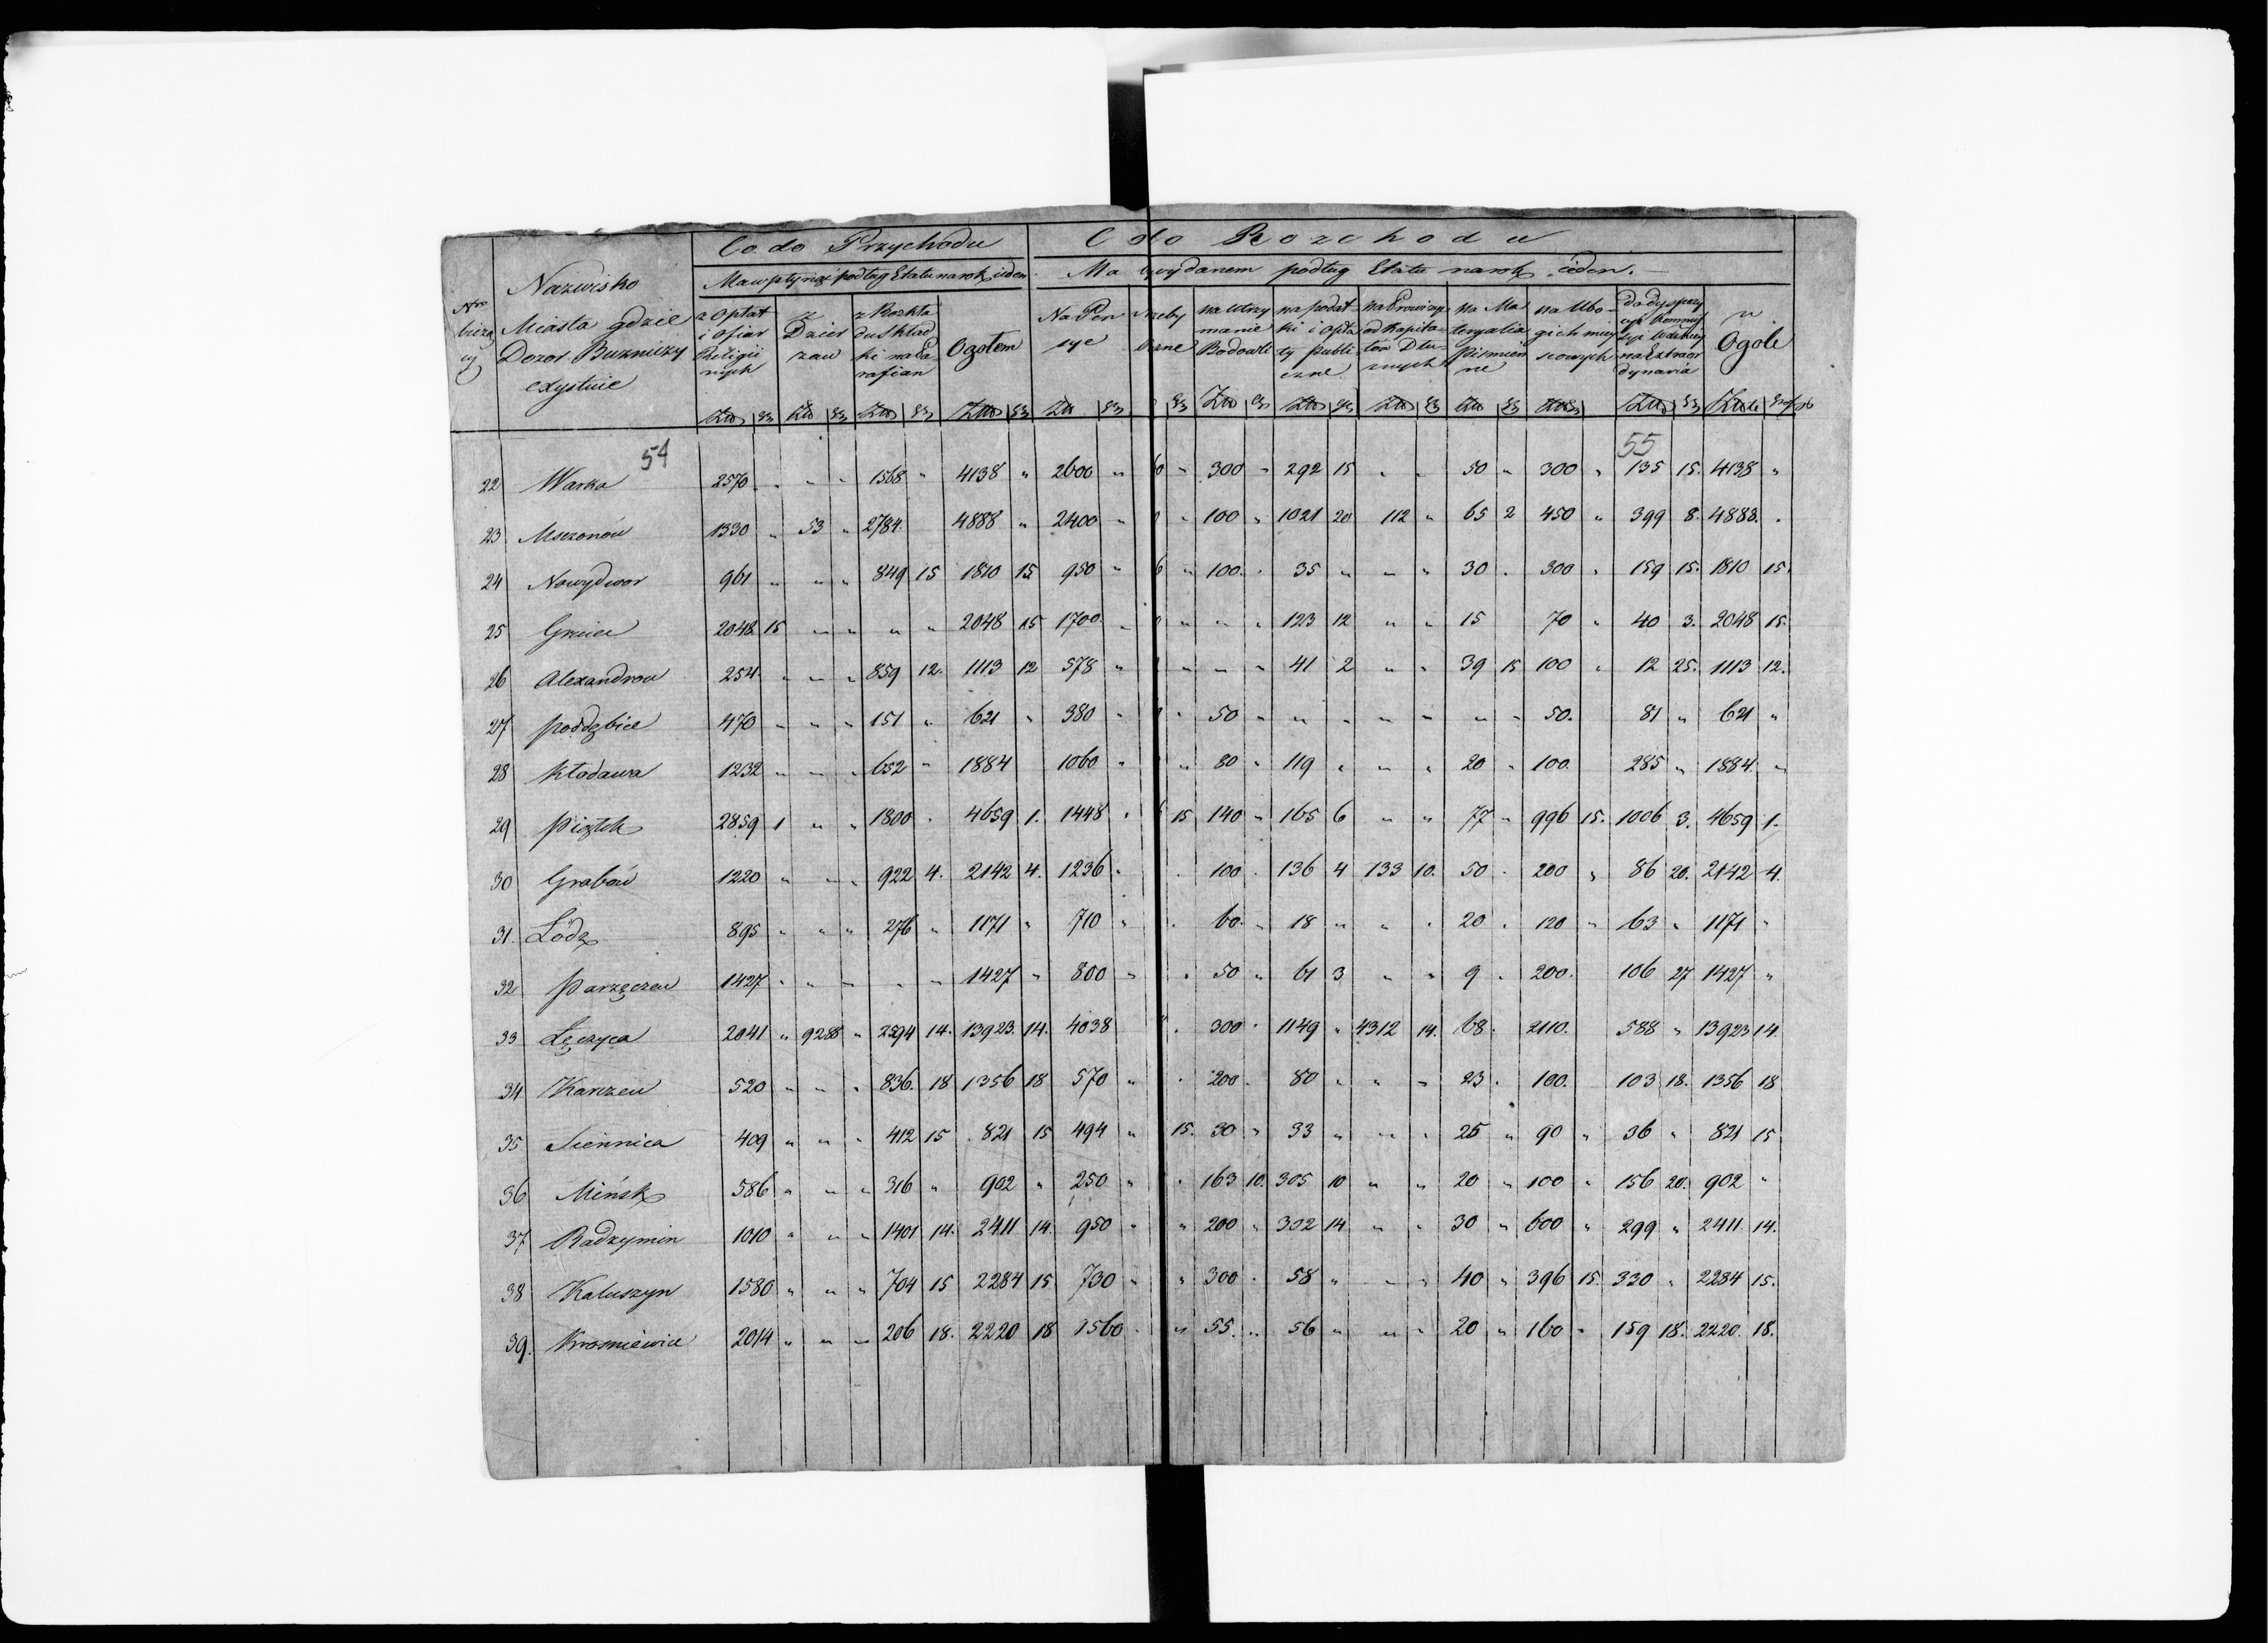 Co do Przychodu
Co do Rozchodu
Ma wpłynąć podług Etatu na rok ieden
Ma wydanem podług Etatu na rok ieden.
Nro bieżący
Nazwisko Miasta gdzie Dozor Bużniczy exystuie
z Opłat i Ofiar Religiinych
z Dzierzaw
z Rozkładu Składki na Parafian
Ogółem
Na Pensye
na Utrzymanie Budowli
na podatki i opłaty publiczne
na Prowizye od Kapitałow Dłużnych
na Materyalia piśmienne
na Ubogich mieyscowych
na Extraordynaria
w Ogole
54
55
22 Warka 2570 „ „ „ 1568 „ 4138 „ 2600 „ 300 „ 292 15 „ „ 50 „ 300 „ 135 15. 4138 „
23 Mszonów 1330 „ 53 „ 2784. 4888 „ 2400 „ „ 100 „ 1021 20 112 „ 65 2 450 „ 399 8. 4888. „
24 Nowydwor 961 „ „ „ 849 15 1810 15 950 „ „ 100. „ 35 „ „ „ 30 . 300 „ 159 15. 1810 15.
25 2048 15 „ „ „ „ 2048 15 1700. „ „ „ „ 123 12 „ „ 15 70 „ 40 3. 2048 15.
26 Alexandrow 254. „ „ „ 859 12. 1113 12 578 „ „ „ „ 41 2 „ „ 39 15 100 „ 12 25. 1113 12.
27 Poddębice 470 „ „ „ 151 „ 621 „ 380 „ „ 50 „ „ „ „ „ „ „ 50. 81 „ 621 „
28 Kłodawa 1232 „ „ „ 652 „ 1884 1060 „ „ 80 „ 119 „ „ „ 20 „ 100. 285 „ 1884. „
29 Piątek 2859 1 „ „ 1800 „ 4659 1. 1448 „ 15 140 „ 165 6 „ „ 77 „ 996 15. 1006 3. 4659 1.
30 Grabów 1220 „ „ „ 922 4. 2142 4. 1236 . . 100 . 136 4 133 10. 50 . 200 „ 86 20. 2142 4.
31. Łódz 895 „ „ „ 276 „ 1171 „ 710 „ . 60. „ 18 „ „ „ 20 . 120 „ 63 „ 1171 „
32 Parzęczew 1427 „ „ „ „ „ 1427 „ 800 „ „ 50 „ 61 3 „ „ 9 . 200. 106 27 1427 „
33 Łęczyca 2041 „ 9288 „ 2594 14. 13923. 14. 4038 . 300 „ 1149 „ 4312 14. 68. 2110. 588 „ 13923 14.
34 Karczew 520 „ „ „ 836. 18 1356 18 570 „ . 200 . 80 „ „ „ 23 . 100. 103 18. 1356 18
35 Siennica 409 „ „ „ 412 15 821 15 494 „ 15. 30 „ 33 „ „ „ 25 „ 90 „ 36 „ 821 15
36 Mińsk 586 „ „ „ 316 „ 902 „ 250 „ „ 163 10. 305 10 „ „ 20 „ 100 „ 156 20. 902 „
37 Radzymin 1010 „ „ „ 1401 14. 2411 14. 950 „ „ 200 „ 302 14 „ „ 30 „ 600 „ 299 „ 2411. 14.
38 Kałuszyn 1580 „ „ „ 704 15 2284 15 730 „ „ 300 . 58 „ „ „ 40 „ 396 15. 330 „ 2284 15.
39. Krosniewice 2014 „ „ „ 206 18. 2220 18 1560 . „ 55. „ 56 „ „ „ 20 „ 160 „ 159 18. 2220. 18.